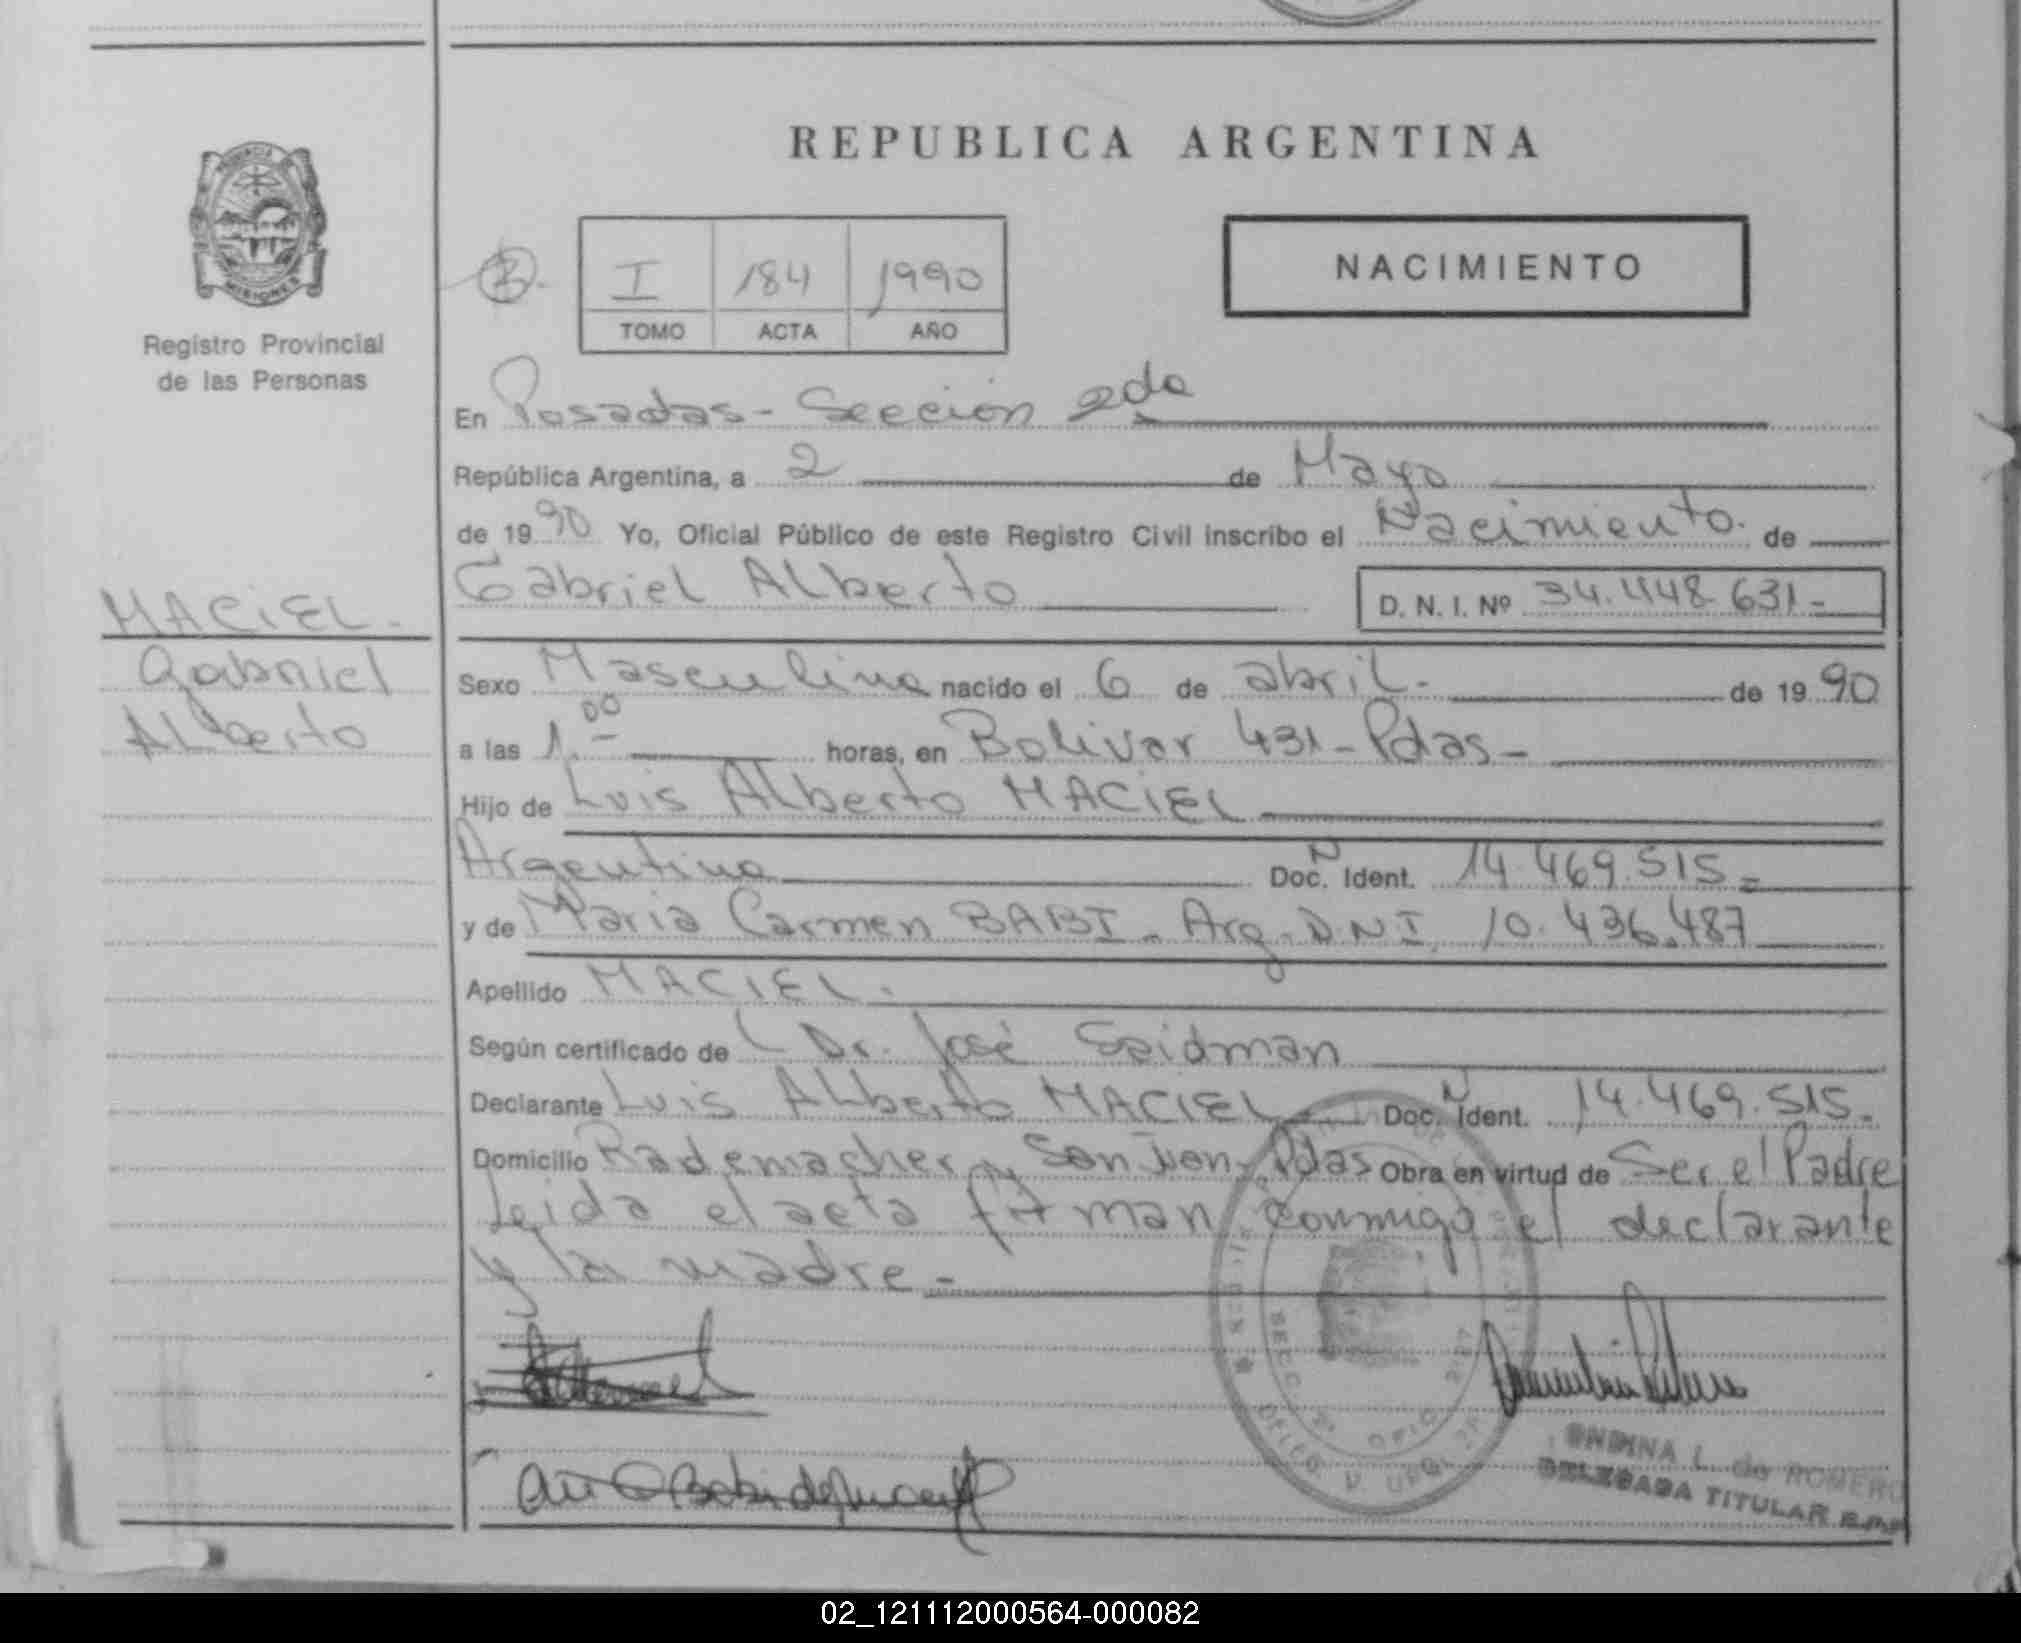 REPUBLICA ARGENTINA
PROVINCIA
MISIONES
Registro Provincial
de las Personas
I 184 1990
TOMO ACTA AÑO
NACIMIENTO
En Posadas - Sección 2da
República Argentina, a 2 de Mayo
de 1990 Yo, Oficial Público de este Registro Civil inscribo el Nacimiento. de
Gabriel Alberto D. N. I. Nº 34.448.631-
MACIEL.
Gabriel
Alberto
Sexo Masculino nacido el 6 de abril. de 1990
a las 1.00 horas, en Bolivar 431 - Pdas -
Hijo de Luis Alberto MACIEL
Argentino Doc. Ident. 14.469.515.-
y de Maria Carmen BABI - Arg. D.N.I. 10.436.487
Apellido MACIEL.
Según certificado de Dr. José Seidman
Declarante Luis Alberto MACIEL Doc. Ident. 14.469.515.-
Domicilio Rademacher y San Juan, Pdas Obra en virtud de Ser el Padre
Leida el acta firman conmigo el declarante
y la madre -
ONDINA L. de ROMERO
DELEGADA TITULAR
02_121112000564-000082